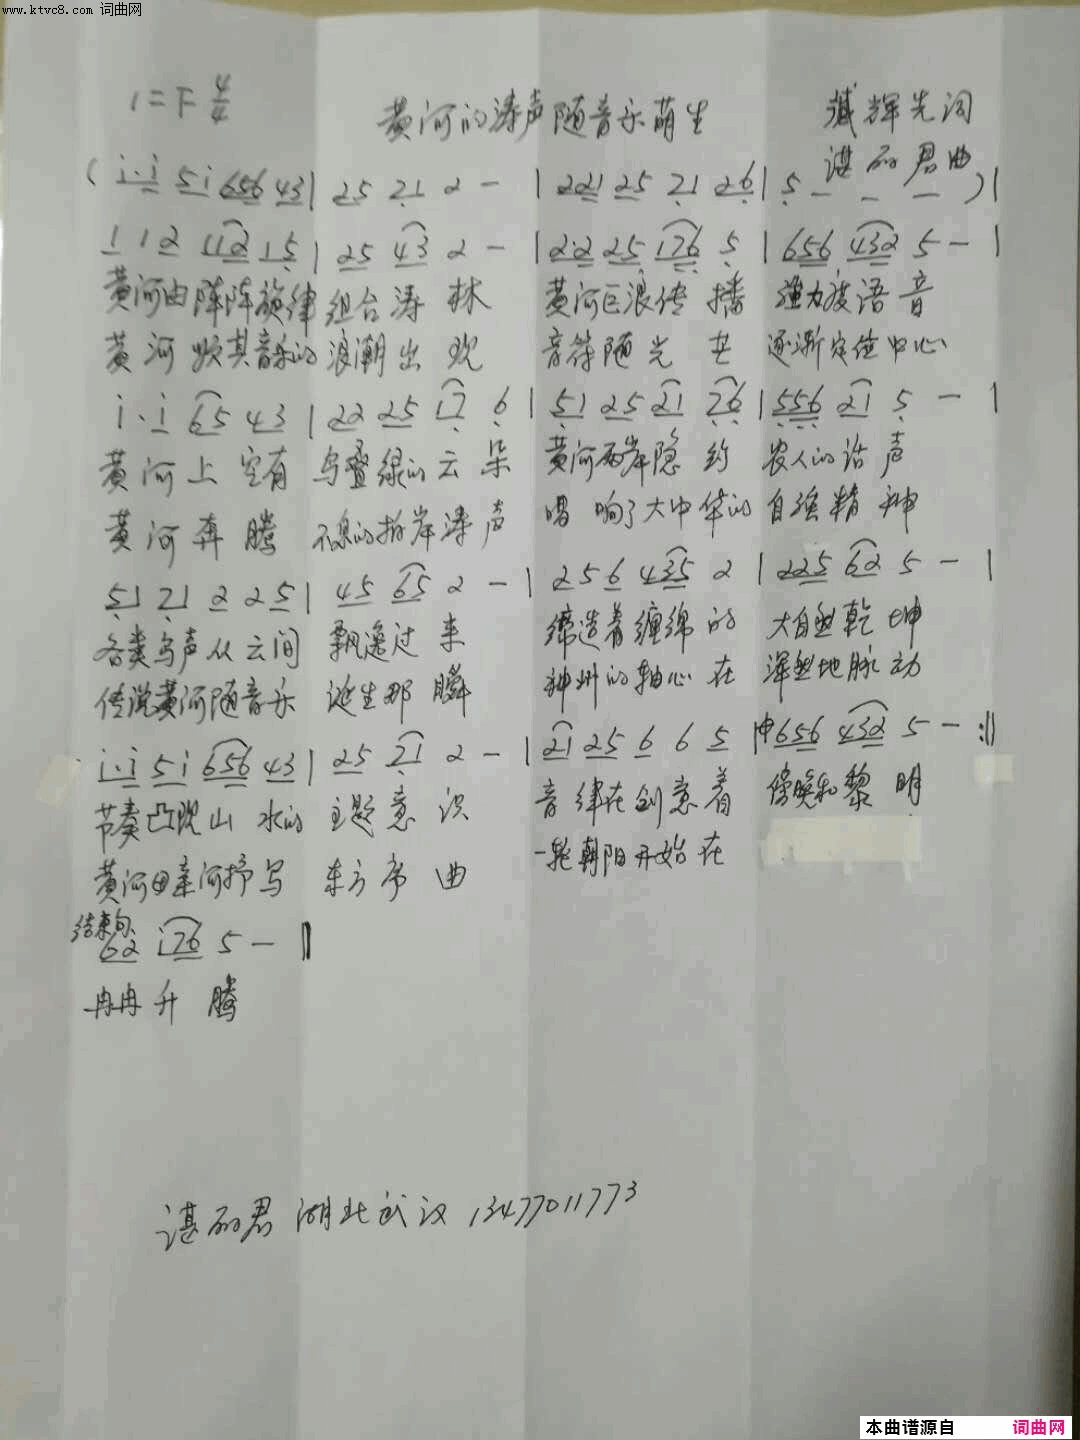 www.ktvc8.com 词曲网
1=F 4/4
黄河的涛声随音乐萌生
臧辉先词
谌丽君曲
( i·i 5i 656 43 | 25 21 2 - | 221 25 21 26 | 5 - - - ) |
1 12 112 15 | 25 43 2 - | 22 25 176 5 | 656 432 5 - |
黄河由阵阵旋律 组合涛林 黄河巨浪传播 强力度语音
黄河频其音乐的 浪潮出现 音符随光芒 逐渐定位中心
i·i 65 43 | 22 25 17 6 | 51 25 21 76 | 556 21 5 - |
黄河上空有 鸟叠绿的云朵 黄河两岸隐约 农人的话声
黄河奔腾 不息的拍岸涛声 唱响了大中华的 自强精神
51 21 2 25 | 45 65 2 - | 256 435 2 | 225 62 5 - |
各类鸟声从云间 飘遥过来 缔造着缠绵的 大自然乾坤
传说黄河随音乐 诞生那瞬 神州的轴心在 浑然地脉动
i·i 5i 656 43 | 25 21 2 - | 21 25 6 6 5 | 656 432 5 - :||
节奏凸现山水的 主题意识 音律在创意着 傍晚和黎明
黄河母亲河抒写 东方序曲 一轮朝阳开始在
结束句
62 i76 5 - ||
冉冉升腾
谌丽君 湖北武汉 13477011773
本曲谱源自 词曲网